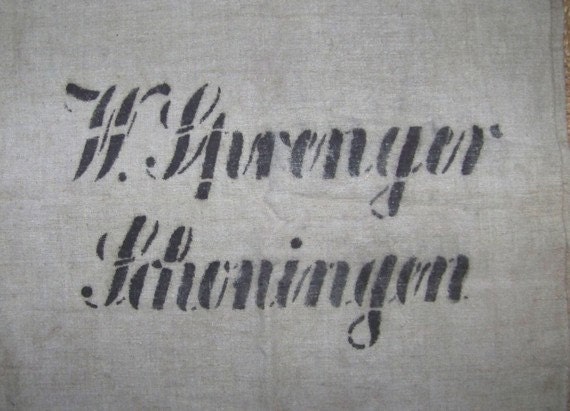 W. Sprenger
Schoningen